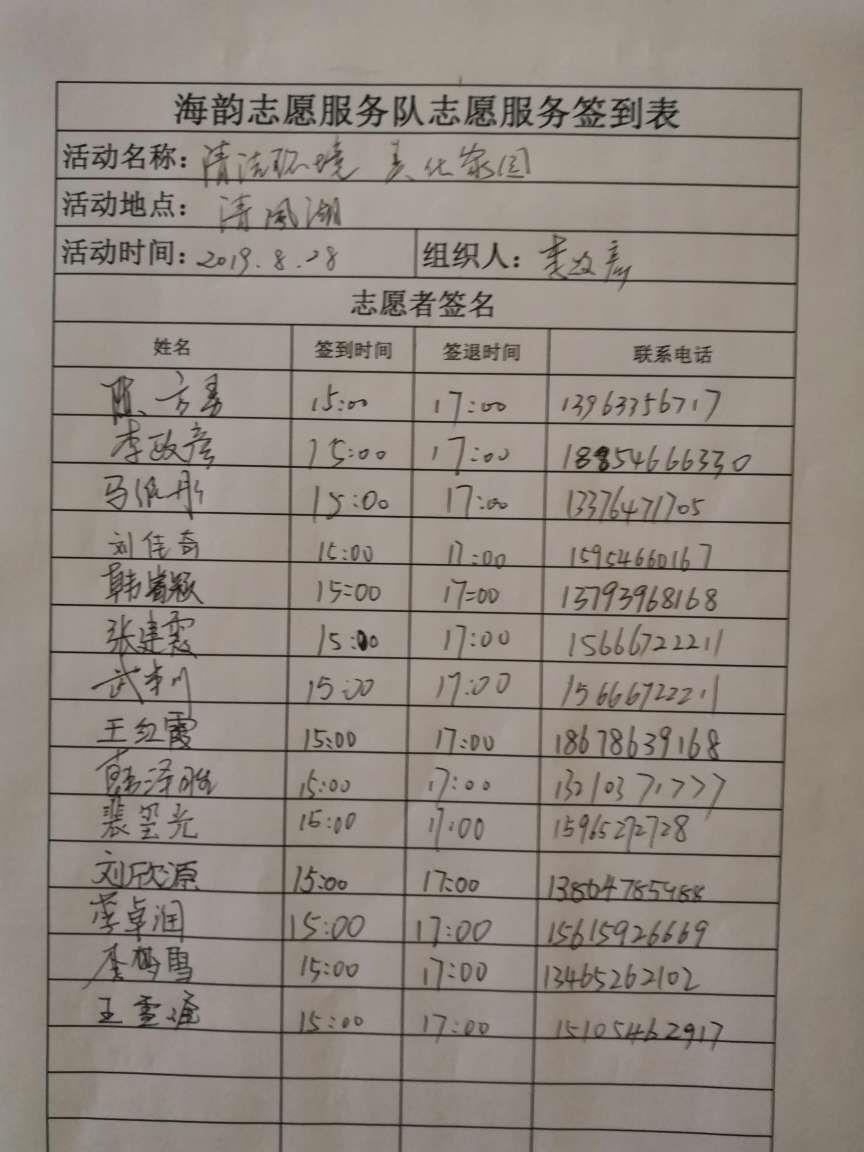 海韵志愿服务队志愿服务签到表
活动名称：清洁环境 美化家园
活动地点：清风湖
活动时间：2019.8.28 组织人：李政彦
志愿者签名
姓名 签到时间 签退时间 联系电话
陈方勇 15:00 17:00 13963356717
李政彦 15:00 17:00 18854666330
马佩彤 15:00 17:00 13376471705
刘佳奇 15:00 17:00 15954660167
韩睿颖 15:00 17:00 13793968168
张建霞 15:00 17:00 15666722211
15:00 17:00 15666722211
王红霞 15:00 17:00 18678639168
15:00 17:00 13210371777
裴玺光 15:00 17:00 15965272728
刘欣源 15:00 17:00
李卓润 15:00 17:00 15615926669
李梦雪 15:00 17:00 13465262102
王雪 15:00 17:00 15105462917